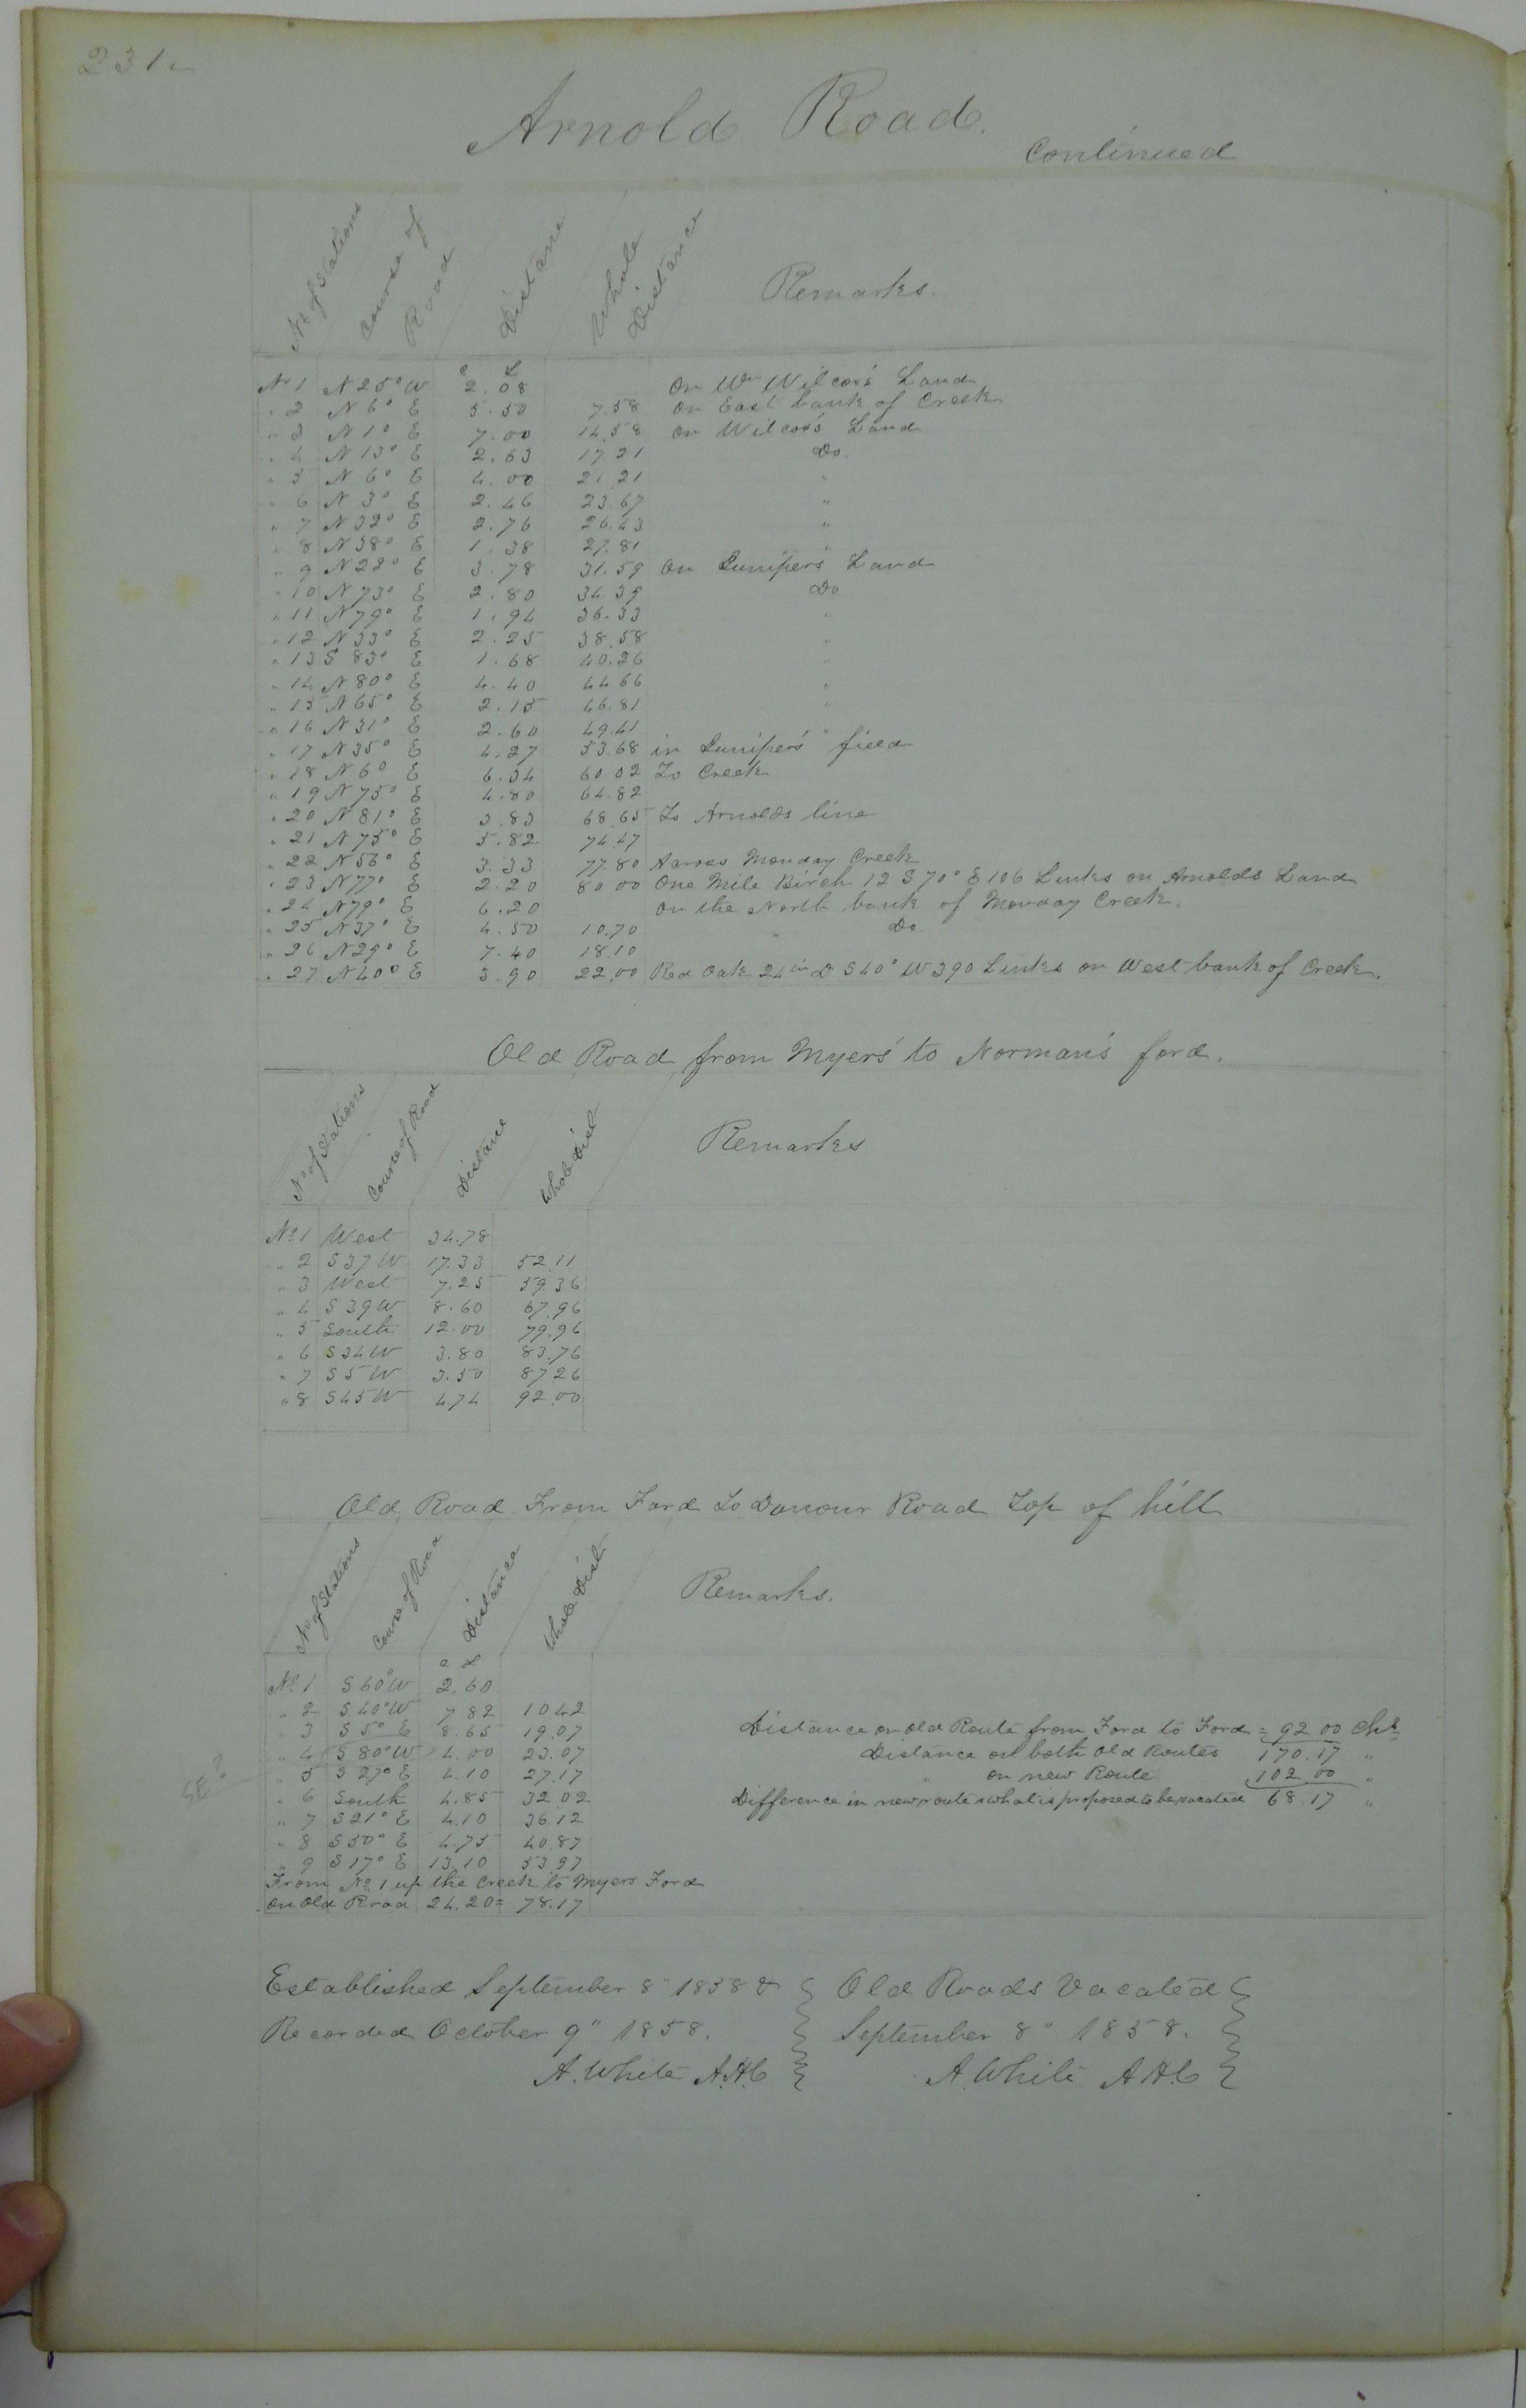 231.
Arnold Road.
Continued
No of Stations Course of Road Distane Whole Distance Remarks.
C L
No 1 N 25° W 2.08 On Wm Wilcox's Land
" 2 N 6° E 5.50 7.58 On East bank of Creek
" 3 N 1° E 7.00 14.58 On Wilcox's Land
" 4 N 13° E 2.63 17.21 Do.
" 5 N 6° E 4.00 21.21 "
" 6 N 3° E 2.46 23.67 "
" 7 N 32° E 2.76 26.43 "
" 8 N 38° E 1.38 27.81 "
" 9 N 22° E 3.78 31.59 On Junipers Land
" 10 N 73° E 2.80 34.39 Do
" 11 N 79° E 1.94 36.33 "
" 12 N 33° E 2.25 38.58 "
" 13 S 83° E 1.68 40.26 "
" 14 N 80° E 4.40 44.66 "
" 15 N 65° E 2.15 46.81 "
" 16 N 31° E 2.60 49.41 "
" 17 N 35° E 4.27 53.68 in Juniper's field
" 18 N 6° E 6.34 60 02 To Creek
" 19 N 75° E 4.80 64.82
" 20 N 81° E 3.83 68.65 To Arnolds line
" 21 N 75° E 5.82 74.47
" 22 N 56° E 3.33 77.80 Across Monday Creek
" 23 N 77° E 2.20 80 00 One Mile Birch 12 S 70° E 106 Links on Arnolds Land
" 24 N 79° E 6.20 On the North bank of Monday Creek.
" 25 N 37° E 4.50 10.70 Do
" 26 N 29° E 7.40 18.10
" 27 N 40° E 3.90 22.00 Red Oak 24 in D S 40° W 390 Links on West bank of Creek.
Old Road from Myers' to Norman's ford.
No of Stations Course of Road Distane Whole Dist Remarks
No 1 West 34.78
" 2 S 37 W 17.33 52.11
" 3 West 7.25 59.36
" 4 S 39 W 8.60 67.96
" 5 South 12.00 79.96
" 6 S 34 W 3.80 83.76
" 7 S 5 W 3.50 87 26
" 8 S 45 W 4.74 92.00
Old Road From Ford To Road Top of hill
No of Stations Course of Road Distance Whole Dist. Remarks.
C L
No 1 S 60° W 2.60
" 2 S 40° W 7 82 10 42
" 3 S 5° E 8.65 19.07 Distance on old Route from Ford to Ford = 92 00 Chs
" 4 S 80° W 4.00 23.07 Distance on both old Routes 170.17 "
SE?
" 5 S 27° E 4.10 27.17 " on new Route 102 00 "
" 6 South 4.85 32 02 Difference in new route & what is proposed to be vacated 68.17 "
" 7 S 21° E 4.10 36.12
" 8 S 50° E 4.75 40.87
" 9 S 17° E 13.10 53.97
From No 1 up the Creek to Myers Ford
on Old Road 24.20 = 78.17
Established September 8" 1858 &
Recorded October 9" 1858.
A. White A.H.C
Old Roads Vacated
September 8" 1858.
A. White A.H.C